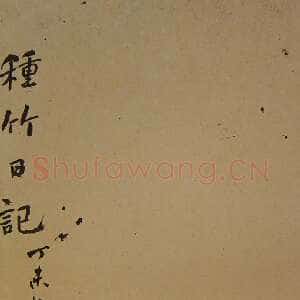 種竹日記
丁未
Shufawang.CN